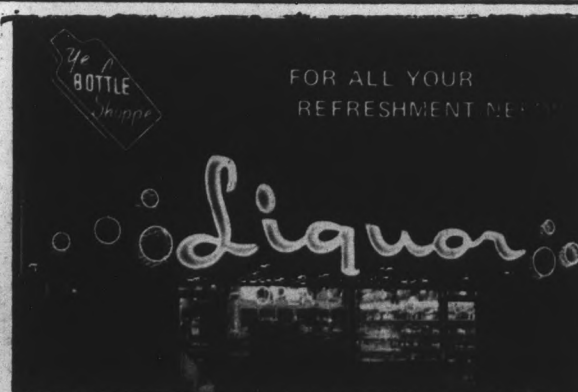 Ye
BOTTLE
Shoppe
FOR ALL YOUR
REFRESHMENT NEEDS
Liquor